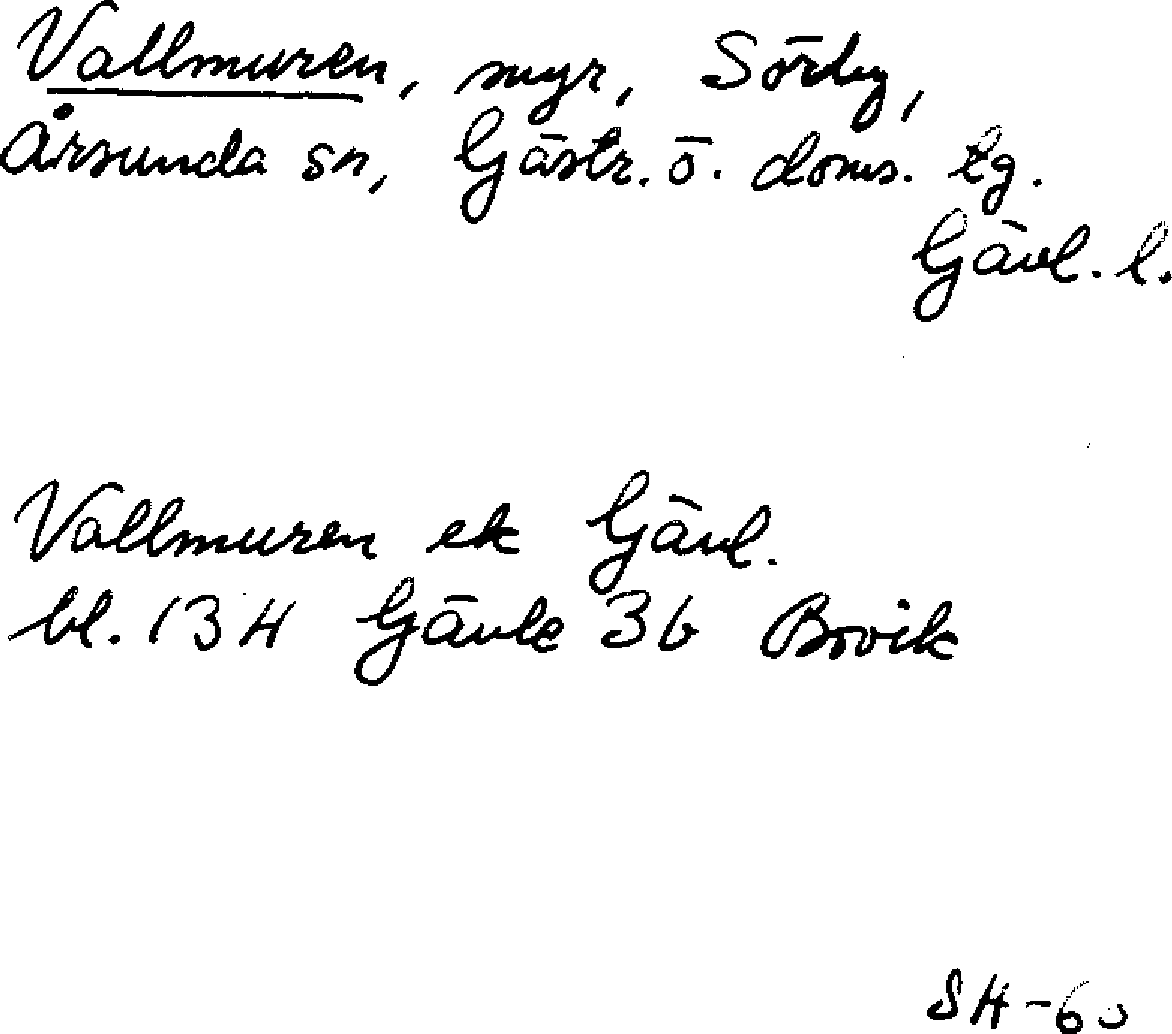 Vallmuren, myr, Sörby,
Årsunda sn, Gästr. ö. doms. tg.
Gävl. l.
Vallmuren ek Gävl.
bl. 134 Gävle 3b Brovik
SH-60